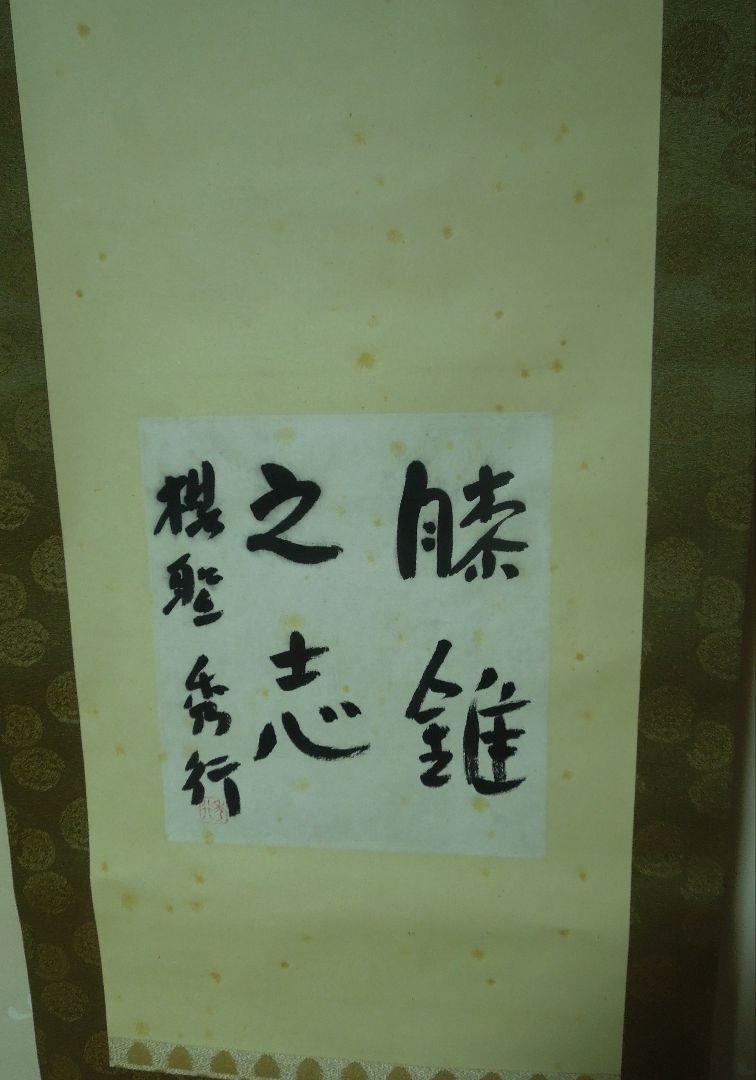 膝錐
之志
棋聖秀行